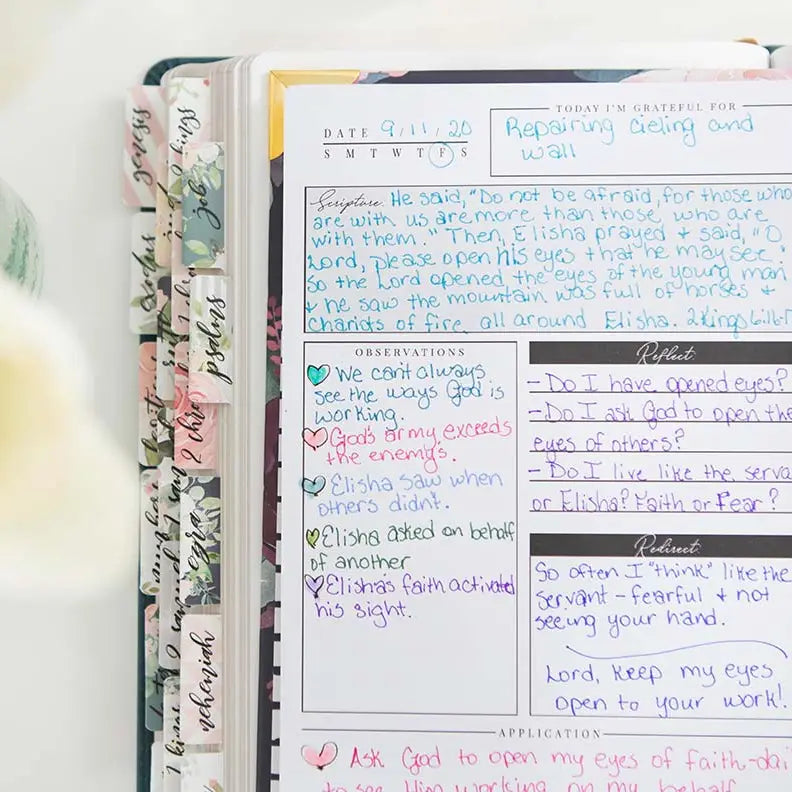 genesis
exodus
ruth
2 kings
job
psalms
2 chro
ezra
nehemiah
TODAY I'M GRATEFUL FOR
DATE 9/11/20
S M T W T F S
Repairing cieling and
wall
Scripture: He said, "Do not be afraid, for those who
are with us are more than those who are
with them." Then, Elisha prayed + said, "O
Lord, please open his eyes that he may see."
So the Lord opened the eyes of the young man
+ he saw the mountain was full of horses +
Chariots of fire all around Elisha. 2 Kings 6:16-1
OBSERVATIONS
We can't always
see the ways God is
working.
God's army exceeds
the enemy's.
Elisha saw when
others didn't.
Elisha asked on behalf
of another
Elisha's faith activated
his sight.
Reflect:
- Do I have opened eyes?
- Do I ask God to open the
eyes of others?
- Do I live like the serva
or Elisha? Faith or Fear?
Redirect:
So often I "think" like the
servant - fearful + not
seeing your hand.
Lord, keep my eyes
open to your work!
APPLICATION
Ask God to open my eyes of faith-dai
to see Him working on my behalf